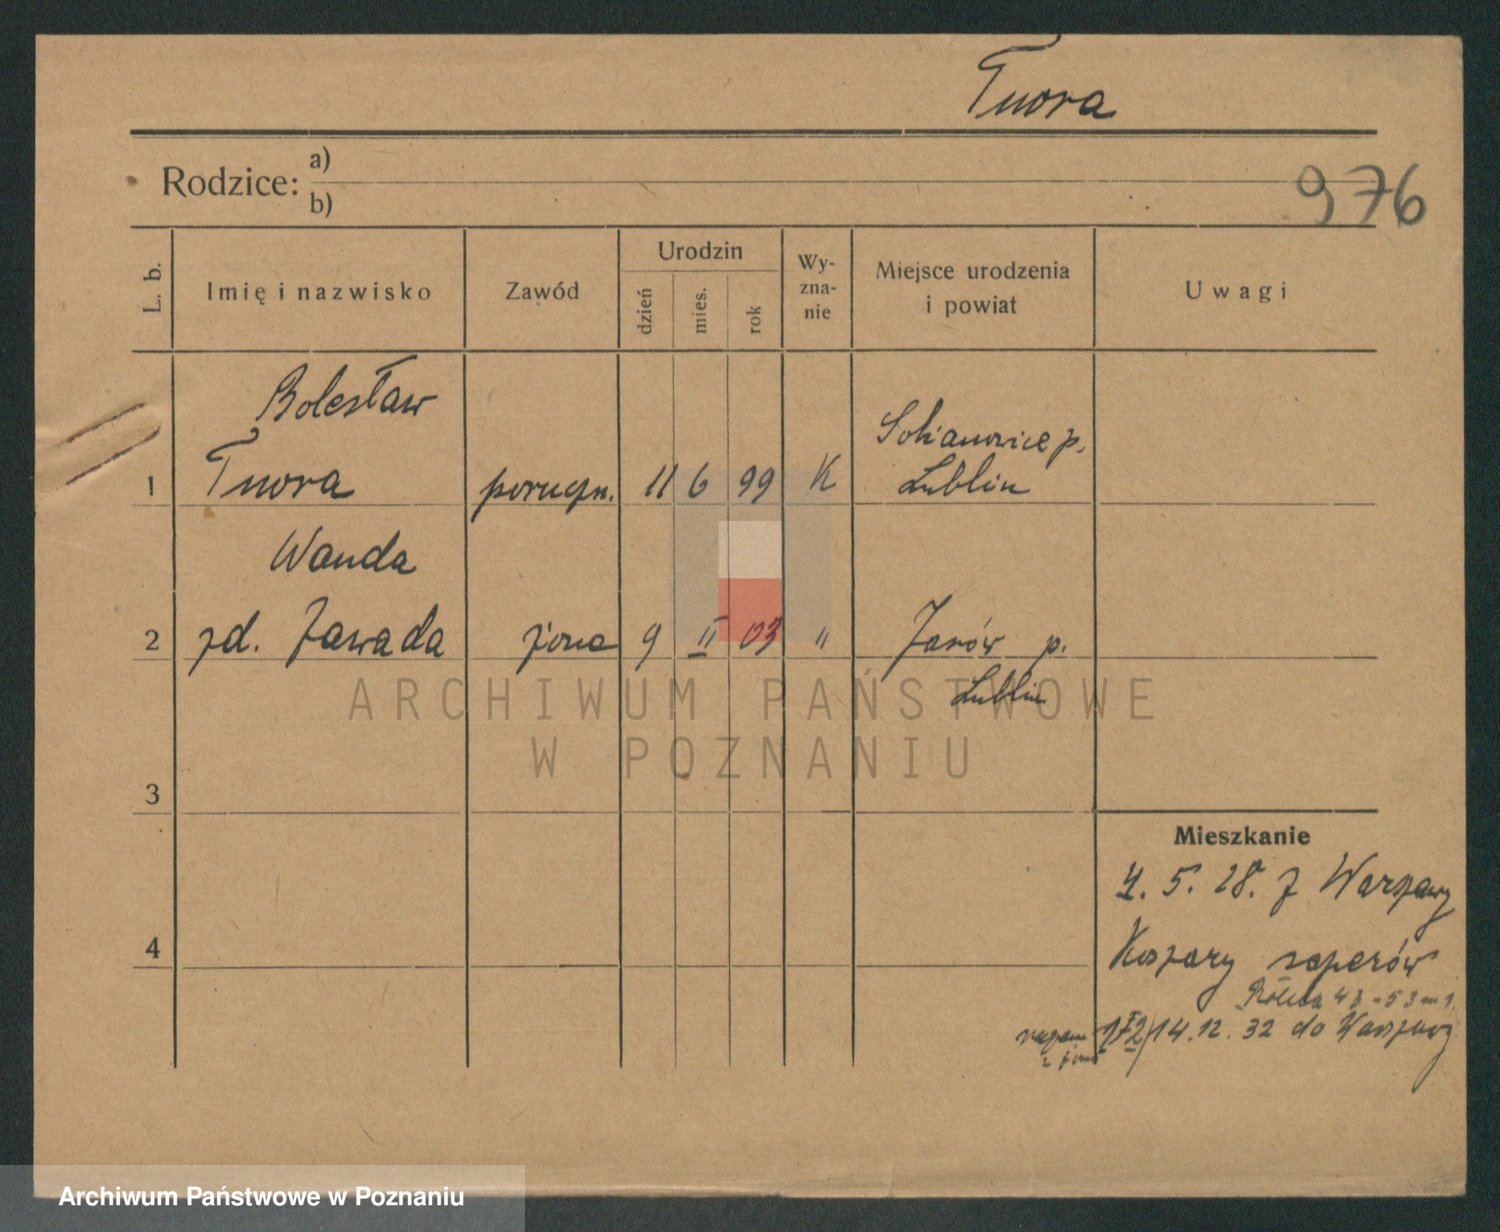 Tuora
Rodzice: a)
b)
976
L. b.
Imię i nazwisko
Zawód
Urodzin
dzień
mies.
rok
Wy-
zna-
nie
Miejsce urodzenia
i powiat
Uwagi
Bolesław
1 Tuora poruczn. 11 6 99 K
p.
Lublin
Wanda
2 zd. Zawada żona 9 II 03 " Janów p.
Lublin
ARCHIWUM PAŃSTWOWE
W POZNANIU
3
Mieszkanie
4. 5. 28. z Warszawy
4
Koszary saperów
Rolna 43-53 m 1.
razem 1 i 2/14.12.32 do Warszawy
z żoną
Archiwum Państwowe w Poznaniu